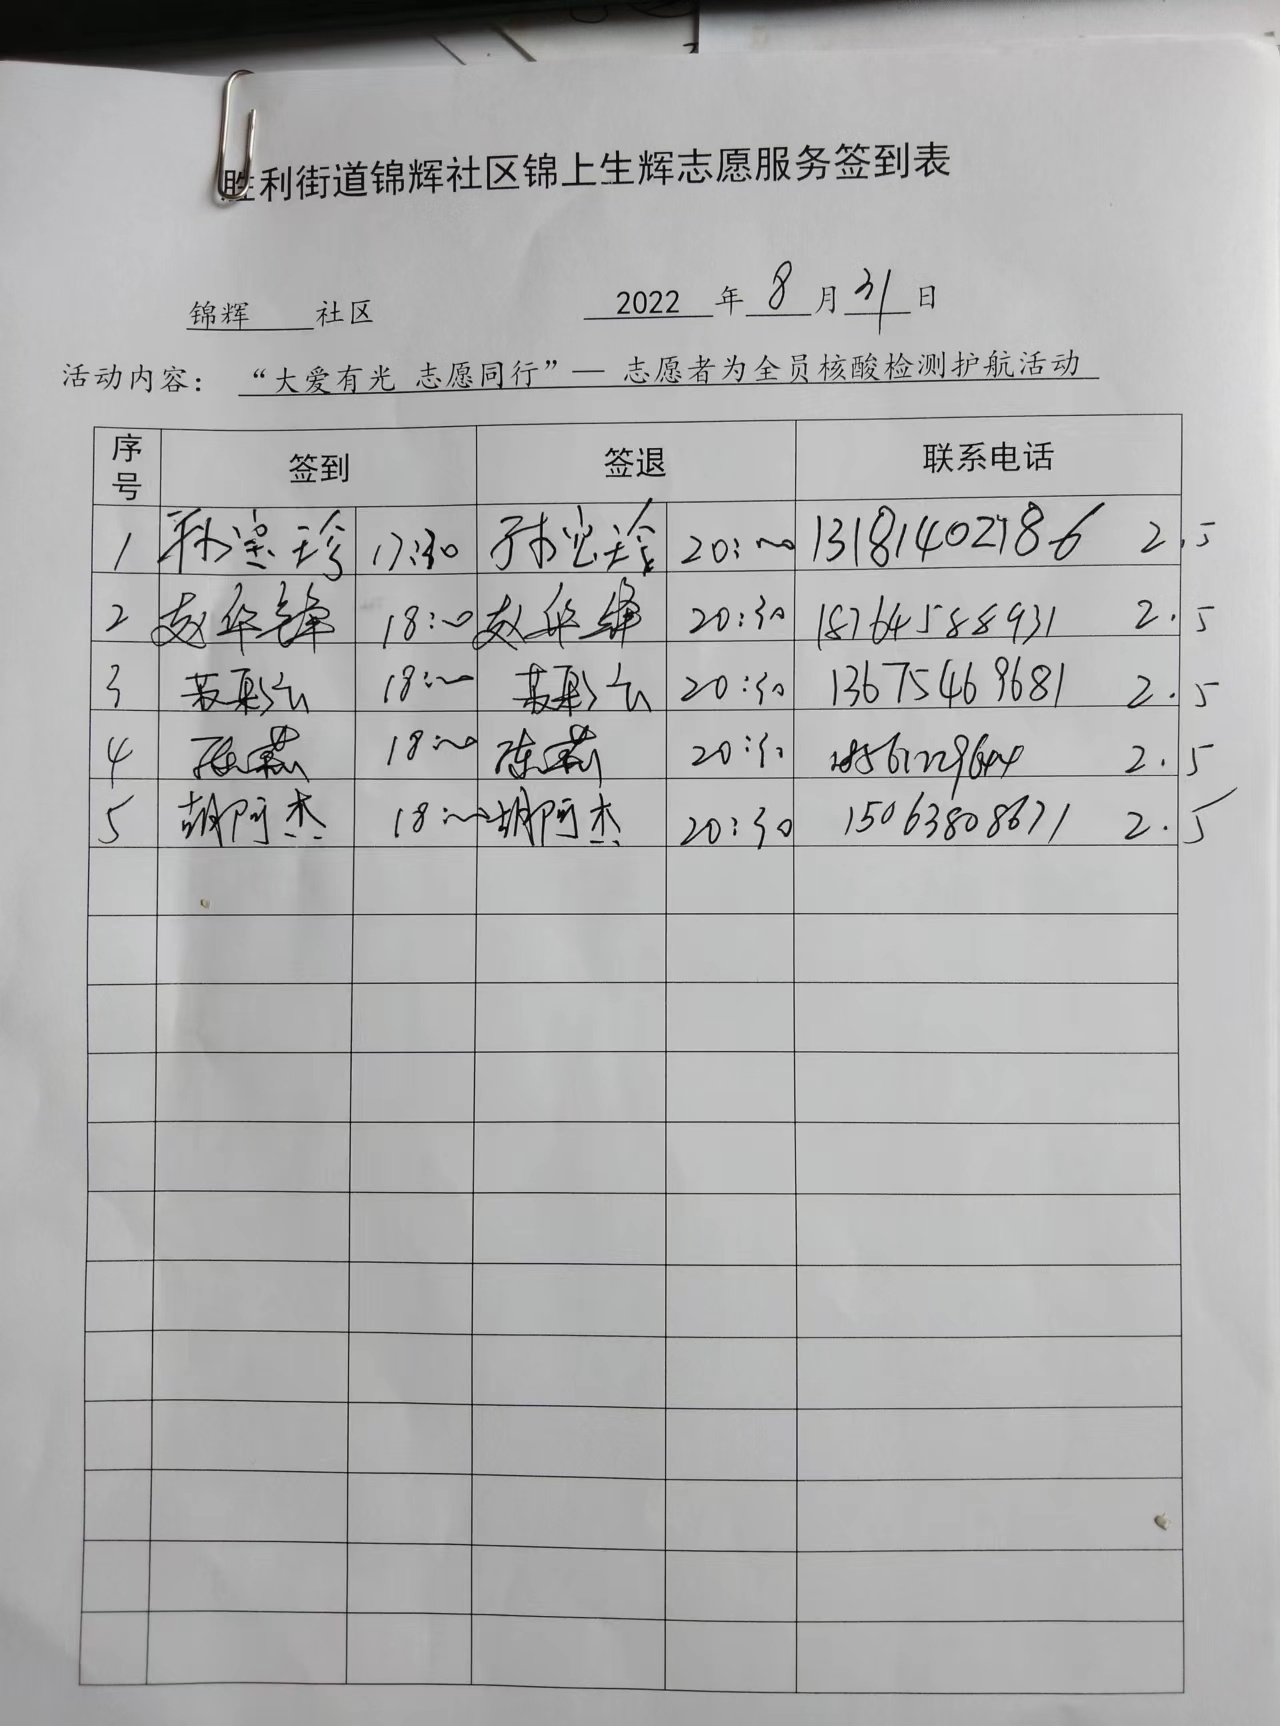 胜利街道锦辉社区锦上生辉志愿服务签到表
锦辉 社区 2022 年 8 月 31 日
活动内容： “大爱有光 志愿同行”— 志愿者为全员核酸检测护航活动
序号 签到 签退 联系电话
1 17:30 20:00 13181402186 2.5
2 赵华锋 18:00 赵华锋 20:30 18764588931 2.5
3 18:00 20:30 13675469681 2.5
4 陈燕 18:00 陈燕 20:30 2.5
5 胡阿杰 18:00 胡阿杰 20:30 15063808671 2.5